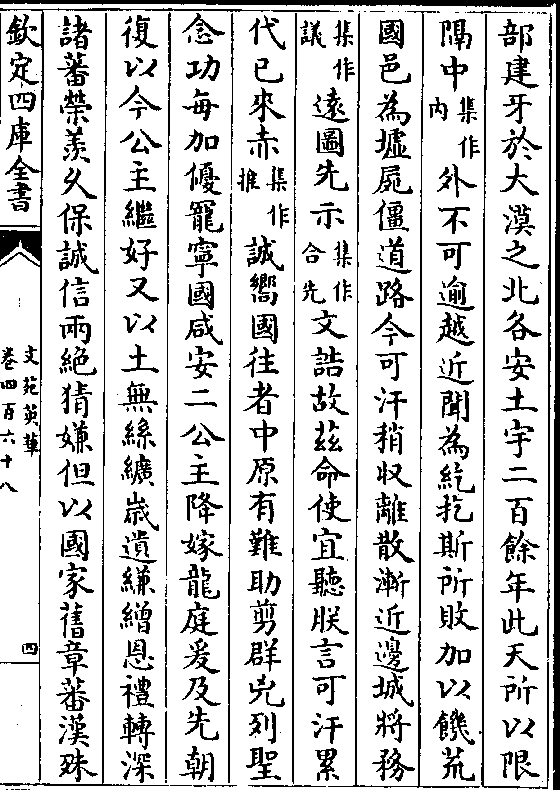 部建牙於大漠之北各安土宇二百餘年此天所以限
隔中集作内外不可逾越近聞為紇扢斯所敗加以饑荒
國邑為墟屍僵道路今可汗稍収離散漸近邊城將務
集作議遠圖先示集作合先文誥故茲命使宜聽朕言可汗累
代已來赤集作推誠嚮國往者中原有難助剪群兇列聖
念功每加優寵寧國咸安二公主降嫁龍庭爰及先朝
復以今公主繼好又以土無絲纊歲遺縑繒恩禮轉深
諸蕃榮羨久保誠信兩絶猜嫌但以國家舊章蕃漢殊
欽定四庫全書
文苑英華
卷四百六十八
四